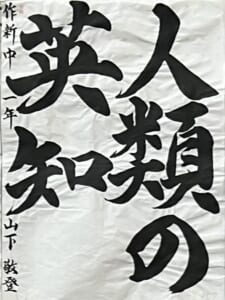 人類の
英知
作新中 一年 山下 敬登